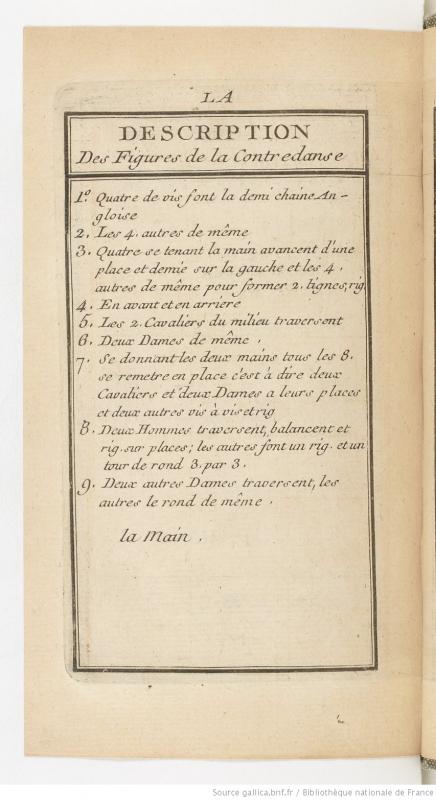 LA
DESCRIPTION
Des Figures de la Contredanse
1.° Quatre de vis font la demi chaine An-
gloise
2. Les 4. autres de même
3. Quatre se tenant la main avancent d'une
place et demie sur la gauche et les 4.
autres de même pour former 2. lignes, rig.
4. En avant et en arriere
5. Les 2. Cavaliers du milieu traversent
6. Deux Dames de même.
7. Se donnant les deux mains tous les 8.
se remetre en place c'est à dire deux
Cavaliers et deux Dames a leurs places
et deux autres vis à vis et rig
8. Deux Hommes traversent, balancent et
rig. sur places; les autres font un rig. et un
tour de rond 3. par 3.
9. Deux autres Dames traversent, les
autres le rond de même.
la Main.
Source gallica.bnf.fr / Bibliothèque nationale de France